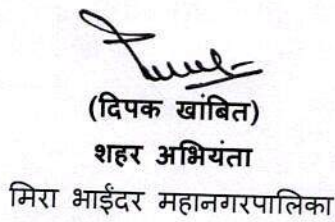 (दिपक खांबित)
शहर अभियंता
मिरा भाईंदर महानगरपालिका